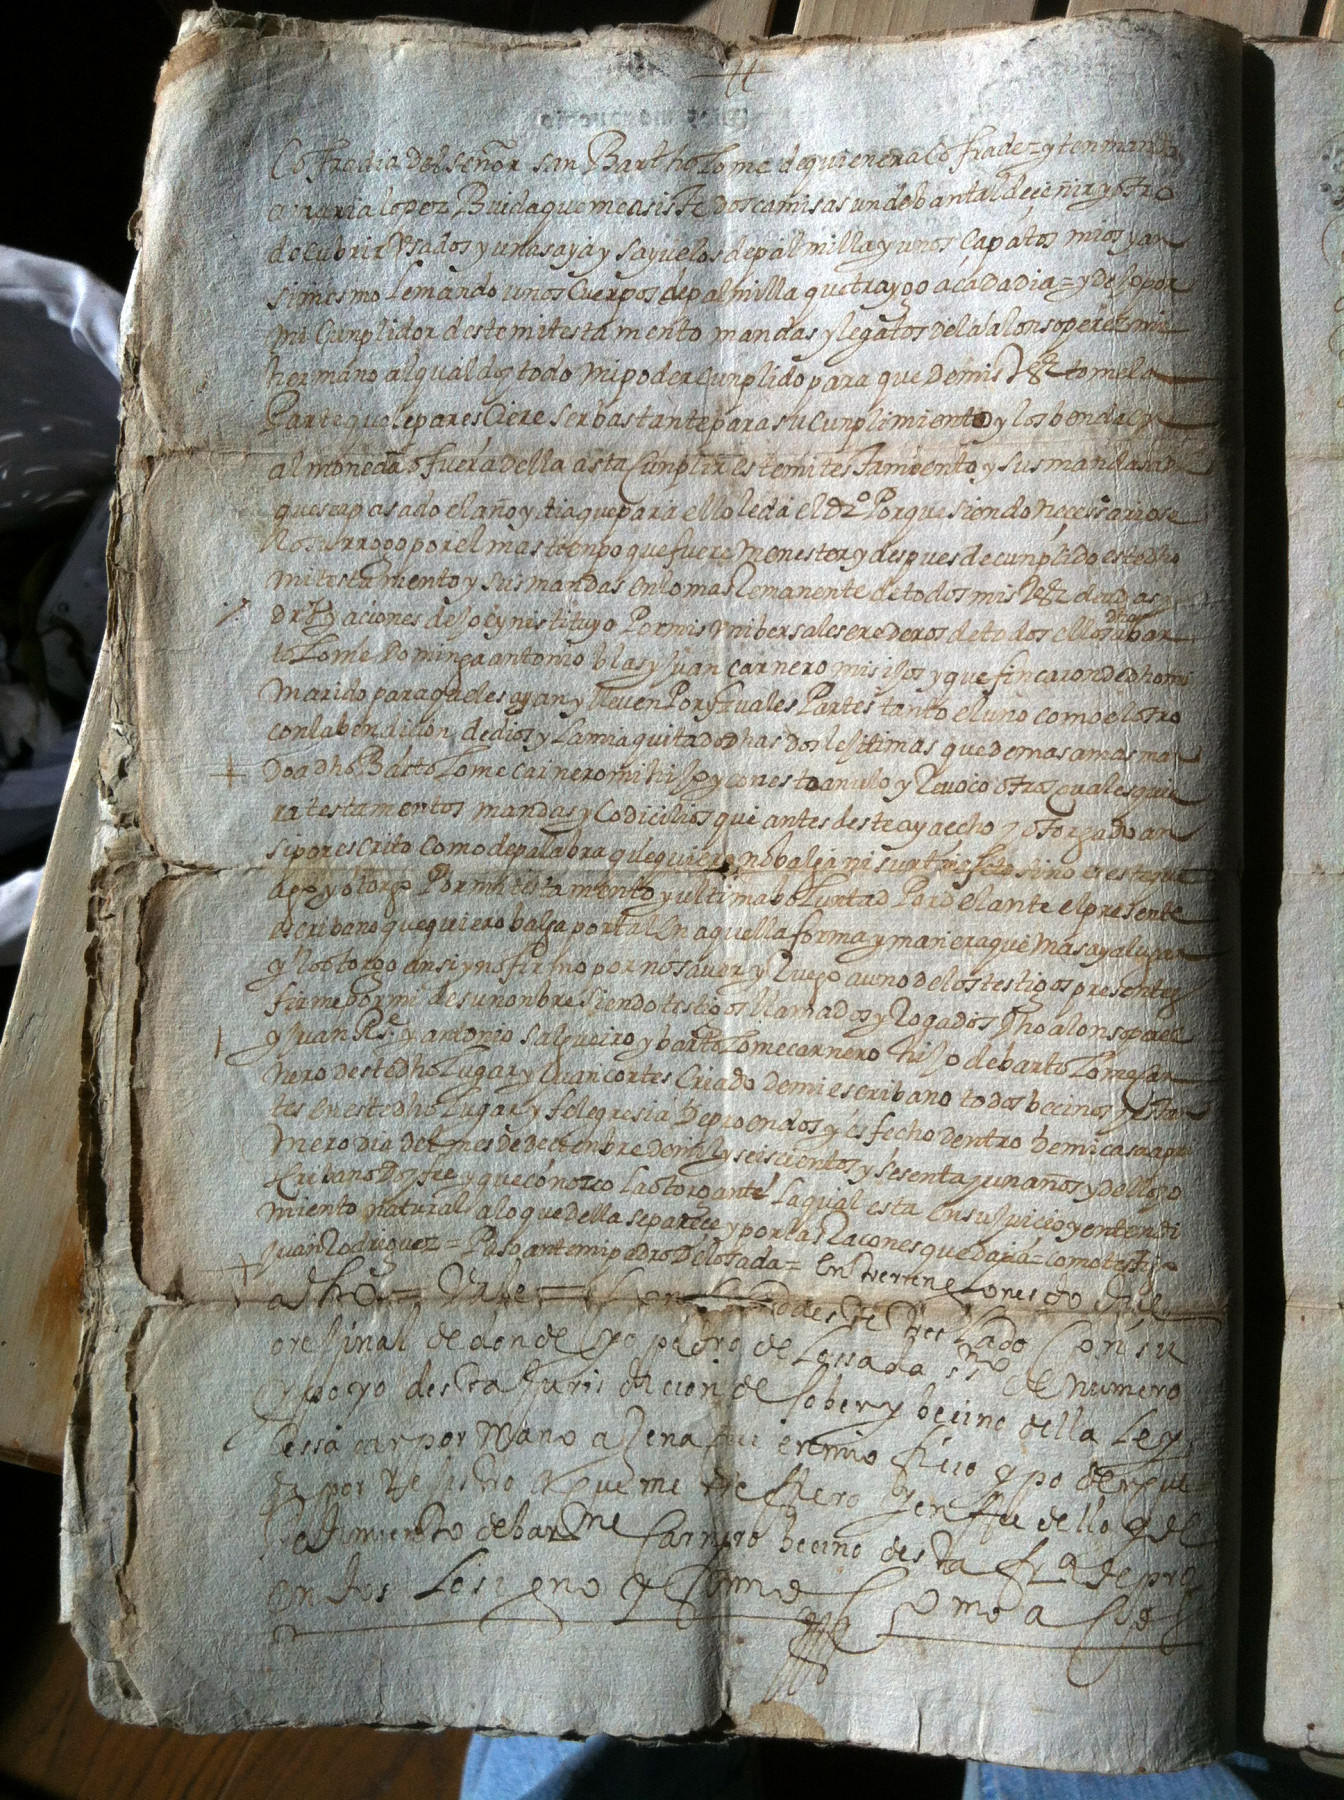 Cofradia del señor san Bartholome de quien era Cofradez y ten manda
a maria lopez Biuda que measiste dos camisas un debantal de ceñir y otro
de cubrir Usados y una saya y sayuelos de palmilla y unos çapatos mios y an
simesmo le mando unos Cuerpos de palmilla que traygo acada dia = y dejo por
mi Cunplidor deste mi testamento mandas y legatos del a alonso perez mi
hermano al qual doy todo mi poder cunplido para que de mis tome la
Parte que le pares Ciere ser bastante para su Cunplimiento y los benda en
al moneda o fuera della asta Cunplir este mi testamiento y sus mandas
que sea pasado el año y dia que para ello le da el dro Porque siendo neçessario se
lo surrogo por el mas tienpo que fuere menester y despues de cunplido este dho
mi testamento y sus mandas en lo mas Remanente de todos mis deudas y
aciones dejo e ynistituyo Por mis Unibersales erederos de todos ellos a dho bar
tolome Dominga antonio blas y Juan carnero mis ijos y que fincaron de dho mi
marido para que les ayan y lleuen Por yguales Partes tanto el uno como el otro
con la bendiçion de dios y la mia quitado dhas dos lesitimas que demas a mas man
do a dho Bartolome carnero mi hijo y con esto anulo y Reuoco otros quales quie
ra testamentos mandas y Codicilios que antes deste aya echo y otorgado an
si por escrito como de palabra que quiero no balga ni surta efeto sino es este que
ago y otorgo Por mi testamento y ultima boluntad Por delante el presente
escribano que quiero balga por tal En aquella forma y manera que mas aya lugar
y lo otorgo ansi y no firmo por no sauer y Ruego a uno de los testigos presentes
firme por mi de su nonbre siendo testigos llamados y Rogados dho alonso perez
y Juan Rs y antonio salgueiro y bartolome carnero hijo de bartolome car
nero deste dho lugar y Juan cortes Criado de mi escribano todos becinos y estan
tes en este dho lugar y felegresia de proendos y es fecho dentro de mi casa a pri
mero dia del mes de decienbre de mil y seiscientos y sesenta y un años y dello yo
escribano Doy fee y que conozco la otorgante la qual esta en su juicio y entendi
miento natural a lo que della se pareçe y por las Raçones que daba = como testigo
Juan Rodriguez = Paso ante mi pedro de losada = Entrerrenglones do dice
a dho = Vale = Concuerda deste treslado Con su
orejinal de donde yo pedro de Lossada sno de numero
y poyo desta Jurisdicion de sober y becino della Le
 saçar por mano ajena fue en mio fico y poder que
da por Rejistro a que me Refiero y en fee dello y de
Pedimiento de barme Carnero becino desta fra de pro
endos Lo signo y firmo Como a Cost